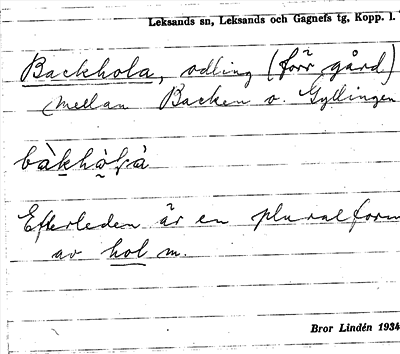 Leksands sn, Leksands och Gagnefs tg, Kopp. l.
Backhola, odling (förr gård)
mellan Backen o. Gyllingen
Efterleden är en pluralform
av hol m.
Bror Lindén 1934